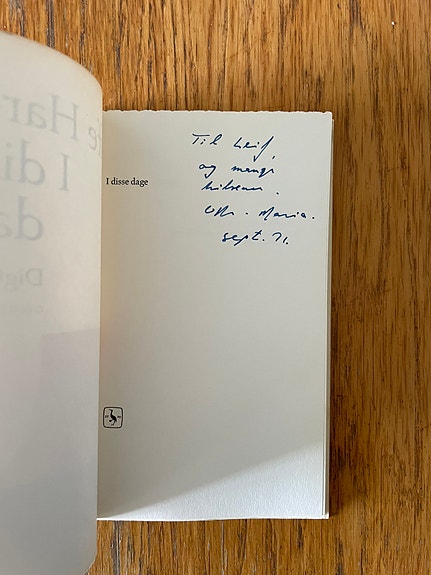 I disse dage
Til Leif,
og mange
hilsener.
Maria.
sept. 71.